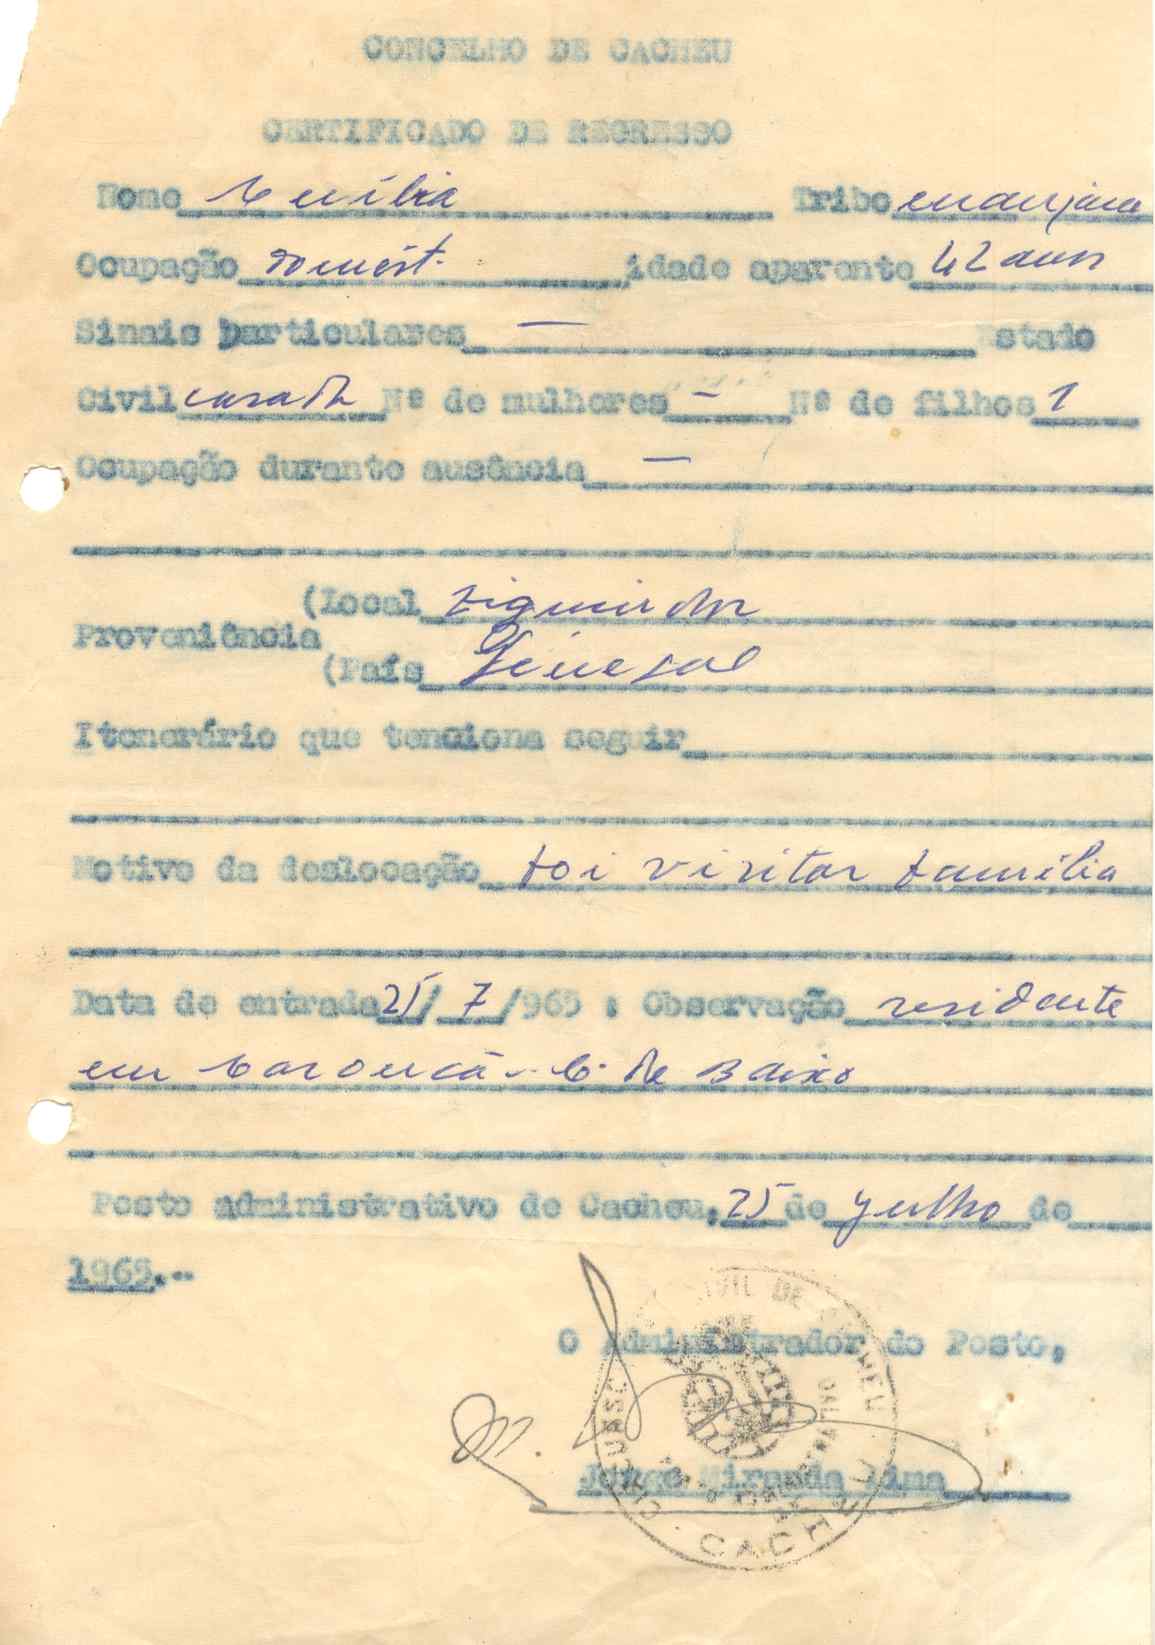 CONCELHO DE CACHEU
CERTIFICADO DE REGRESSO
Nome Tribo manjaca
Ocupação domést. , idade aparente 42 anos
Sinais particulares — Estado
Civil casada Nº de mulheres — Nº de filhos 1
Ocupação durante ausência —
(Local Ziguinchor
Proveniência
(País Senegal
Itenerário que tenciona seguir
Motivo da deslocação foi visitar família
Data de entrada 25/ 7 /965 : Observação residente
em C. de Baixo
Posto administrativo de Cacheu, 25 de julho de
1965.--
O Administrador do Posto,
Jorge Miranda Lima
CIVIL DE CACHEU
CIRCUNSC
CACHEU